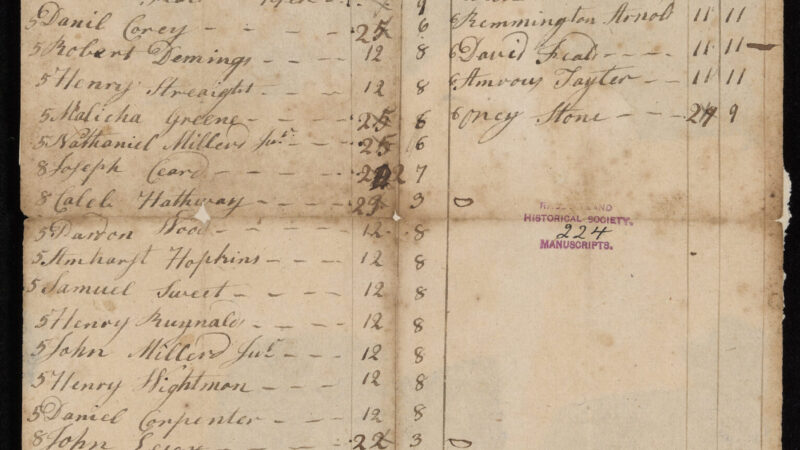 5 Danil Corey - - - 25 6
5 Robert Demings - - - 12 8
5 Henry Streaight - - - 12 8
5 Malicha Greene - - - 25 6
5 Nathaniel Millerd Junr - - 25 6
8 Joseph Ceard - - - 7
8 Caleb Hathway - - - 29 3
5 Darson Wood - - - 12 8
5 Amharst Hopkins - - - 12 8
5 Samuel Sweet - - - 12 8
5 Henry Runnals - - - 12 8
5 John Millerd Junr - - - 12 8
5 Henry Wightmon - - - 12 8
5 Daniel Corpenter - - - 12 8
8 John 22 3
6 Remmington Arnold 11 11
6 David - - - 11 11
6 Amrous Tayter - - - 11 11
6 oney Stone - - - 9
HISTORICAL SOCIETY.
224
MANUSCRIPTS.